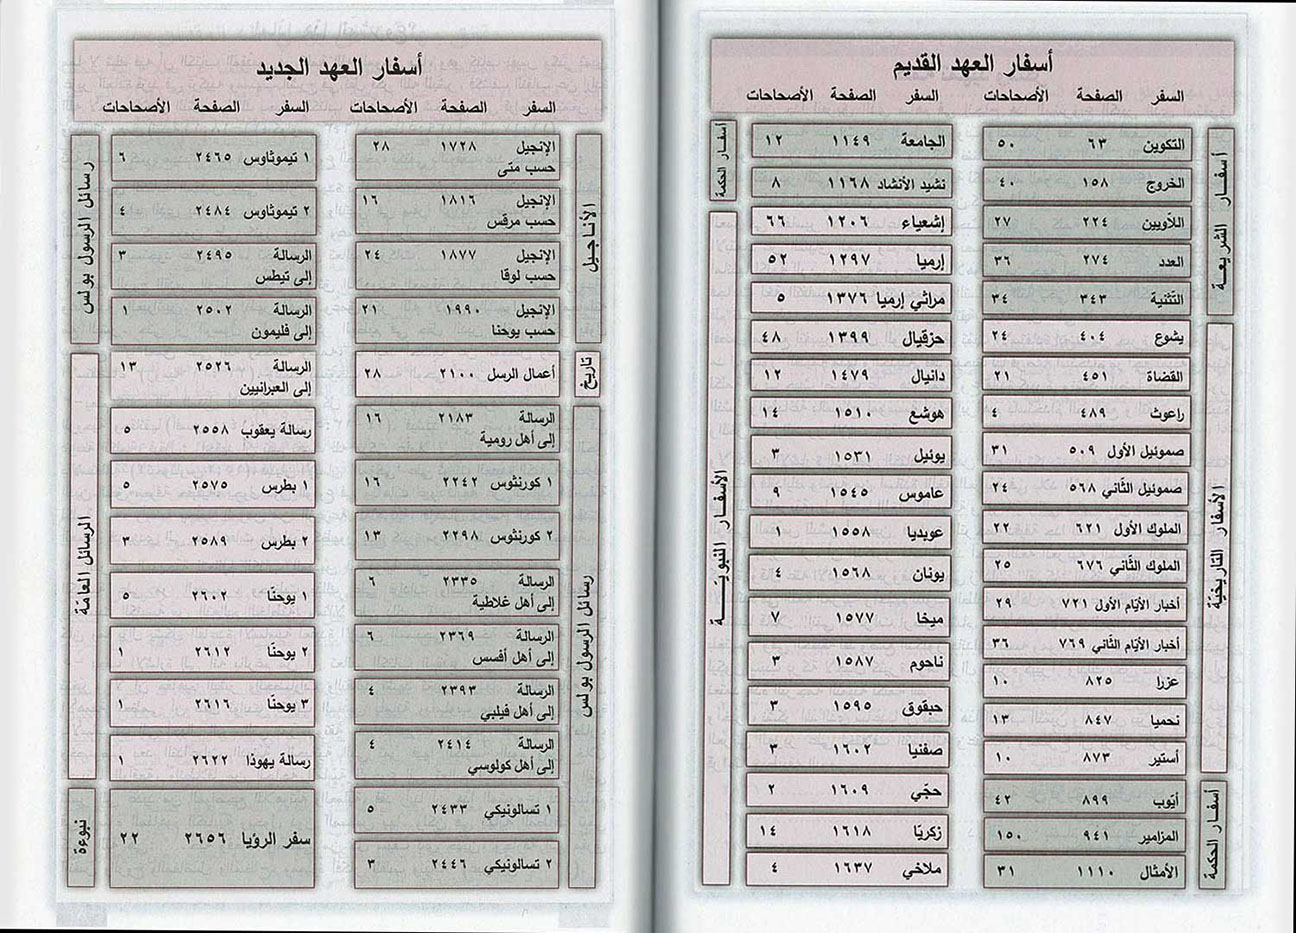 أسفار العهد القديم
السفر الصفحة الأصحاحات السفر الصفحة الأصحاحات
أسفار الشريعة
التكوين ٦٣ ٥٠
الخروج ١٥٨ ٤٠
اللاّويين ٢٢٤ ٢٧
العدد ٢٧٤ ٣٦
التّثنية ٣٤٣ ٣٤
الأسفار التاريخيّة
يشوع ٤٠٤ ٢٤
القضاة ٤٥١ ٢١
راعوث ٤٨٩ ٤
صموئيل الأول ٥٠٩ ٣١
صموئيل الثّاني ٥٦٨ ٢٤
الملوك الأول ٦٢١ ٢٢
الملوك الثّاني ٦٧٦ ٢٥
أخبار الأيّام الأول ٧٢١ ٢٩
أخبار الأيّام الثّاني ٧٦٩ ٣٦
عزرا ٨٢٥ ١٠
نحميا ٨٤٧ ١٣
أستير ٨٧٣ ١٠
أسفار الحكمة
أيّوب ٨٩٩ ٤٢
المزامير ٩٤١ ١٥٠
الأمثال ١١١٠ ٣١
أسفار الحكمة
الجامعة ١١٤٩ ١٢
نشيد الأنشاد ١١٦٨ ٨
الأسفار النبويّة
إشعياء ١٢٠٦ ٦٦
إرميا ١٢٩٧ ٥٢
مراثي إرميا ١٣٧٦ ٥
حزقيال ١٣٩٩ ٤٨
دانيال ١٤٧٩ ١٢
هوشع ١٥١٠ ١٤
يوئيل ١٥٣١ ٣
عاموس ١٥٤٥ ٩
عوبديا ١٥٥٨ ١
يونان ١٥٦٨ ٤
ميخا ١٥٧٧ ٧
ناحوم ١٥٨٧ ٣
حبقوق ١٥٩٥ ٣
صفنيا ١٦٠٢ ٣
حجّي ١٦٠٩ ٢
زكريّا ١٦١٨ ١٤
ملاخي ١٦٣٧ ٤
أسفار العهد الجديد
السفر الصفحة الأصحاحات السفر الصفحة الأصحاحات
الأناجيل
الإنجيل ١٧٢٨ ٢٨
حسب متى
الإنجيل ١٨١٦ ١٦
حسب مرقس
الإنجيل ١٨٧٧ ٢٤
حسب لوقا
الإنجيل ١٩٩٠ ٢١
حسب يوحنا
تاريخ
أعمال الرسل ٢١٠٠ ٢٨
رسائل الرسول بولس
الرسالة ٢١٨٣ ١٦
إلى أهل رومية
١ كورنثوس ٢٢٤٢ ١٦
٢ كورنثوس ٢٢٩٨ ١٣
الرسالة ٢٣٣٥ ٦
إلى أهل غلاطية
الرسالة ٢٣٦٩ ٦
إلى أهل أفسس
الرسالة ٢٣٩٣ ٤
إلى أهل فيلبي
الرسالة ٢٤١٤ ٤
إلى أهل كولوسي
١ تسالونيكي ٢٤٣٣ ٥
٢ تسالونيكي ٢٤٤٦ ٣
رسائل الرسول بولس
١ تيموثاوس ٢٤٦٥ ٦
٢ تيموثاوس ٢٤٨٤ ٤
الرسالة ٢٤٩٥ ٣
إلى تيطس
الرسالة ٢٥٠٢ ١
إلى فليمون
الرسائل العامّة
الرسالة ٢٥٢٦ ١٣
إلى العبرانيين
رسالة يعقوب ٢٥٥٨ ٥
١ بطرس ٢٥٧٥ ٥
٢ بطرس ٢٥٨٩ ٣
١ يوحنّا ٢٦٠٢ ٥
٢ يوحنّا ٢٦١٢ ١
٣ يوحنّا ٢٦١٦ ١
رسالة يهوذا ٢٦٢٢ ١
نبوءة
سفر الرؤيا ٢٦٥٦ ٢٢